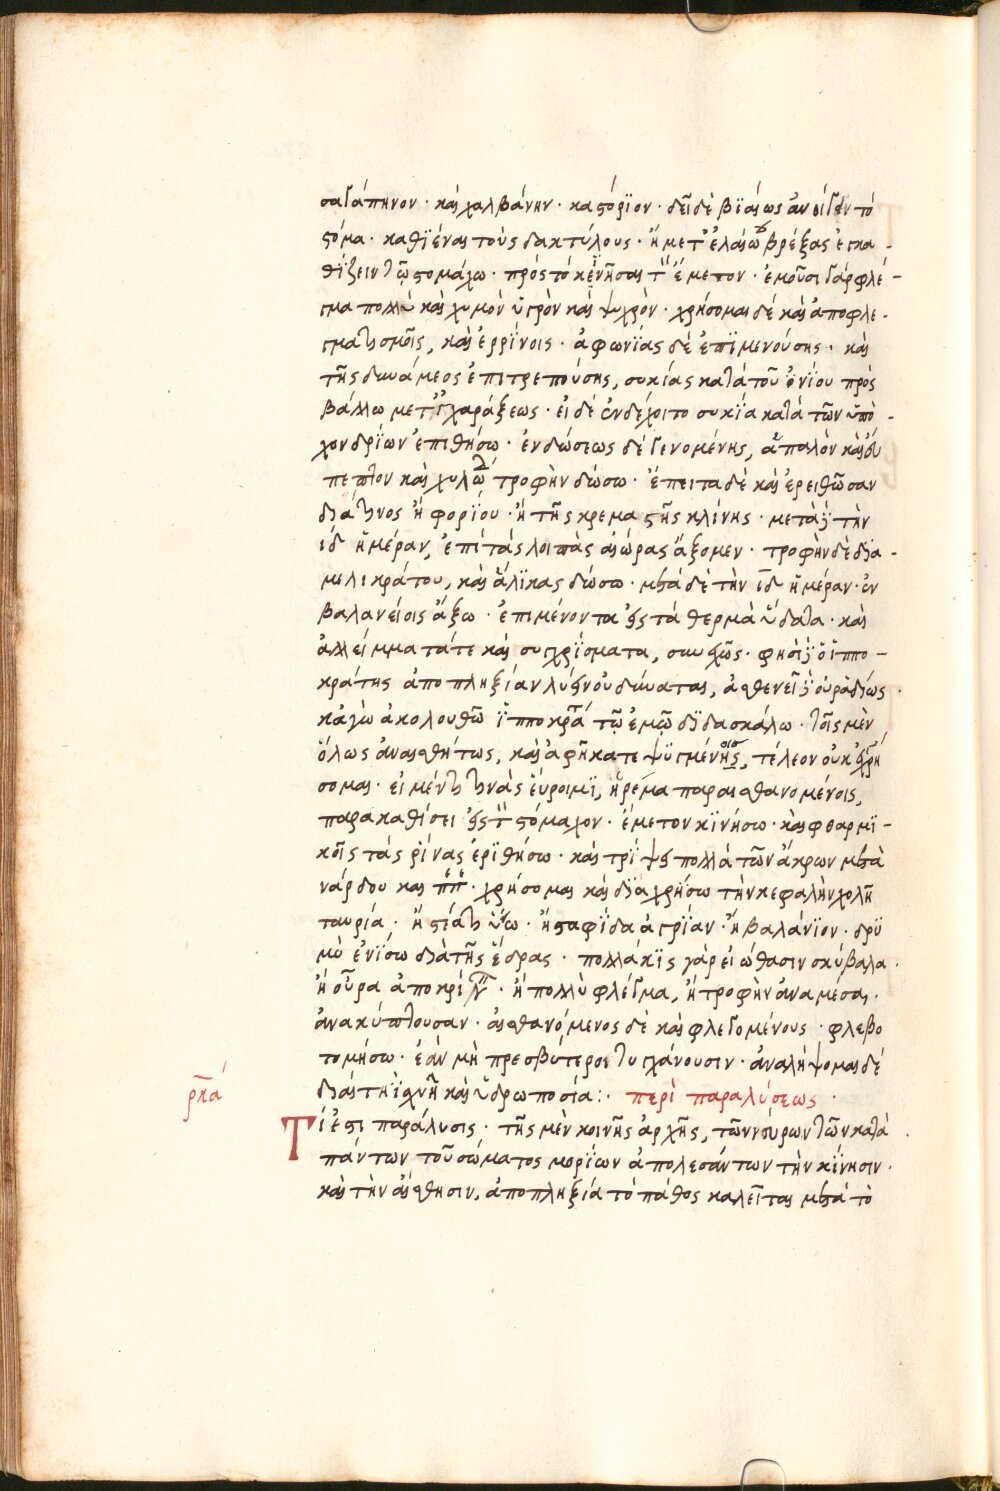 σαγάπηνον · καὶ χαλβάνην · καστόριον · δεῖ δὲ βιαίως ἀνοίγειν τὸ
στόμα · καθϊέναι τοὺς δακτύλους · ἢ μετ' ἐλαίω βρέξας ἐγκα-
θΐζειν τῷ στομάχω · πρὸς τὸ κινῆσαι τὸν ἔμετον · ἐμοῦσι γὰρ φλέ-
γμα πολλὺ καὶ χυμὸν ὑγρὸν καὶ ψυχρὸν · χρήσομαι δὲ καὶ ἀποφλε-
γματισμοῖς, καὶ ἐρρίνοις · ἀφωνΐας δὲ ἐπϊμενούσης · καὶ
τῆς δυνάμεος ἐπιτρεπούσης, συκίας κατὰ τοῦ ϊνΐου πρὸς
βάλλω μετ' ἐγχαράξεως · εἰ δὲ ἐνδέχοιτο συκΐα κατὰ τῶν ὑπὸ-
χονδρΐων ἐπιθήσω · ἐνδώσεως δὲ γενομένης, ἁπαλὸν καὶ εὔ
πεπτον καὶ χυλώδη τροφὴν δώσω · ἔπειτα δὲ καὶ ἐρειθῶσαν
διά τινος ἢ φορΐου · ἢ τῆς κρεμαστῆς κλίνης · μετὰ γὰρ τὴν
ιδ ἡμέραν, ἐπὶ τὰς λοιπὰς αἰώρας ἄξομεν · τροφὴν δὲ δϊα-
μελικράτου, καὶ ἅλϊκας δώσω · μετὰ δὲ τὴν ιδ ἡμέραν · ἐν
βαλανείοις ἄξω · ἐπιμένοντα εἰς τὰ θερμὰ ὕδατα · καὶ
ἀλλείμματα τὲ καὶ συγχρΐσματα, συνεχῶς · φησὶ γὰρ ὁ ἱππο-
κράτης ἀποπληξίαν λύειν οὐ δύναται, ἀσθενεῖ γὰρ οὐ ῥαδίως ·
κἀγὼ ἀκολουθῶ ἱπποκράτει τῷ ἐμῷ δϊδασκάλω · τοῖς μὲν
ὅλως ἀναισθήτως, καὶ ἀφῆ κατεψϋγμένοις, τέλεον οὐκ ἐγχειρή
σομαι · εἰ μέντι τινὰς εὕροιμϊ, ἠρέμα παραισθανομένοις,
παρακαθίσει εἰς τὸν στόμαχον · ἔμετον κϊνήσω · καὶ φθαρμϊ-
κοῖς τὰς ῥίνας ἐρϊθήσω · καὶ τρΐψει πολλὰ τῶν ἄκρων μετὰ
νάρδου καὶ · χρήσομαι καὶ διαχρήσω τὴν κεφαλὴν χολῆ
ταυρία · ἢ · ἢ σταφΐδα ἀγρΐαν · ἢ βαλάνϊον · δρϋ
μὺ ἐνΐσω διὰ τῆς ἕδρας · πολλάκϊς γὰρ εἰώθασιν σκύβαλα ·
ἢ οὖρα ἀποκρί · ἢ πολλὺ φλέγμα, ἢ τροφὴν ἀναμέσα, ·
ἀνακύπτουσαν · αἰσθανόμενος δὲ καὶ φλεγομένους · φλεβο
τομήσω · ἐὰν μὴ πρεσβύτεροι τυγχάνουσιν · ἀναλήψομαι δὲ
διαίτη ϊσχνῆ καὶ ὑδρωποσία :· περὶ παραλύσεως ·
ρκα
Τί ἐστι παράλυσις · τῆς μὲν κοινῆς ἀρχῆς, τῶν νεύρων τῶν κατὰ
πάντων τοῦ σώματος μορΐων ἀπολεσάντων τὴν κΐνησιν ·
καὶ τὴν αἴσθησιν, ἀποπληξία τὸ πάθος καλεῖται μετὰ τὸ